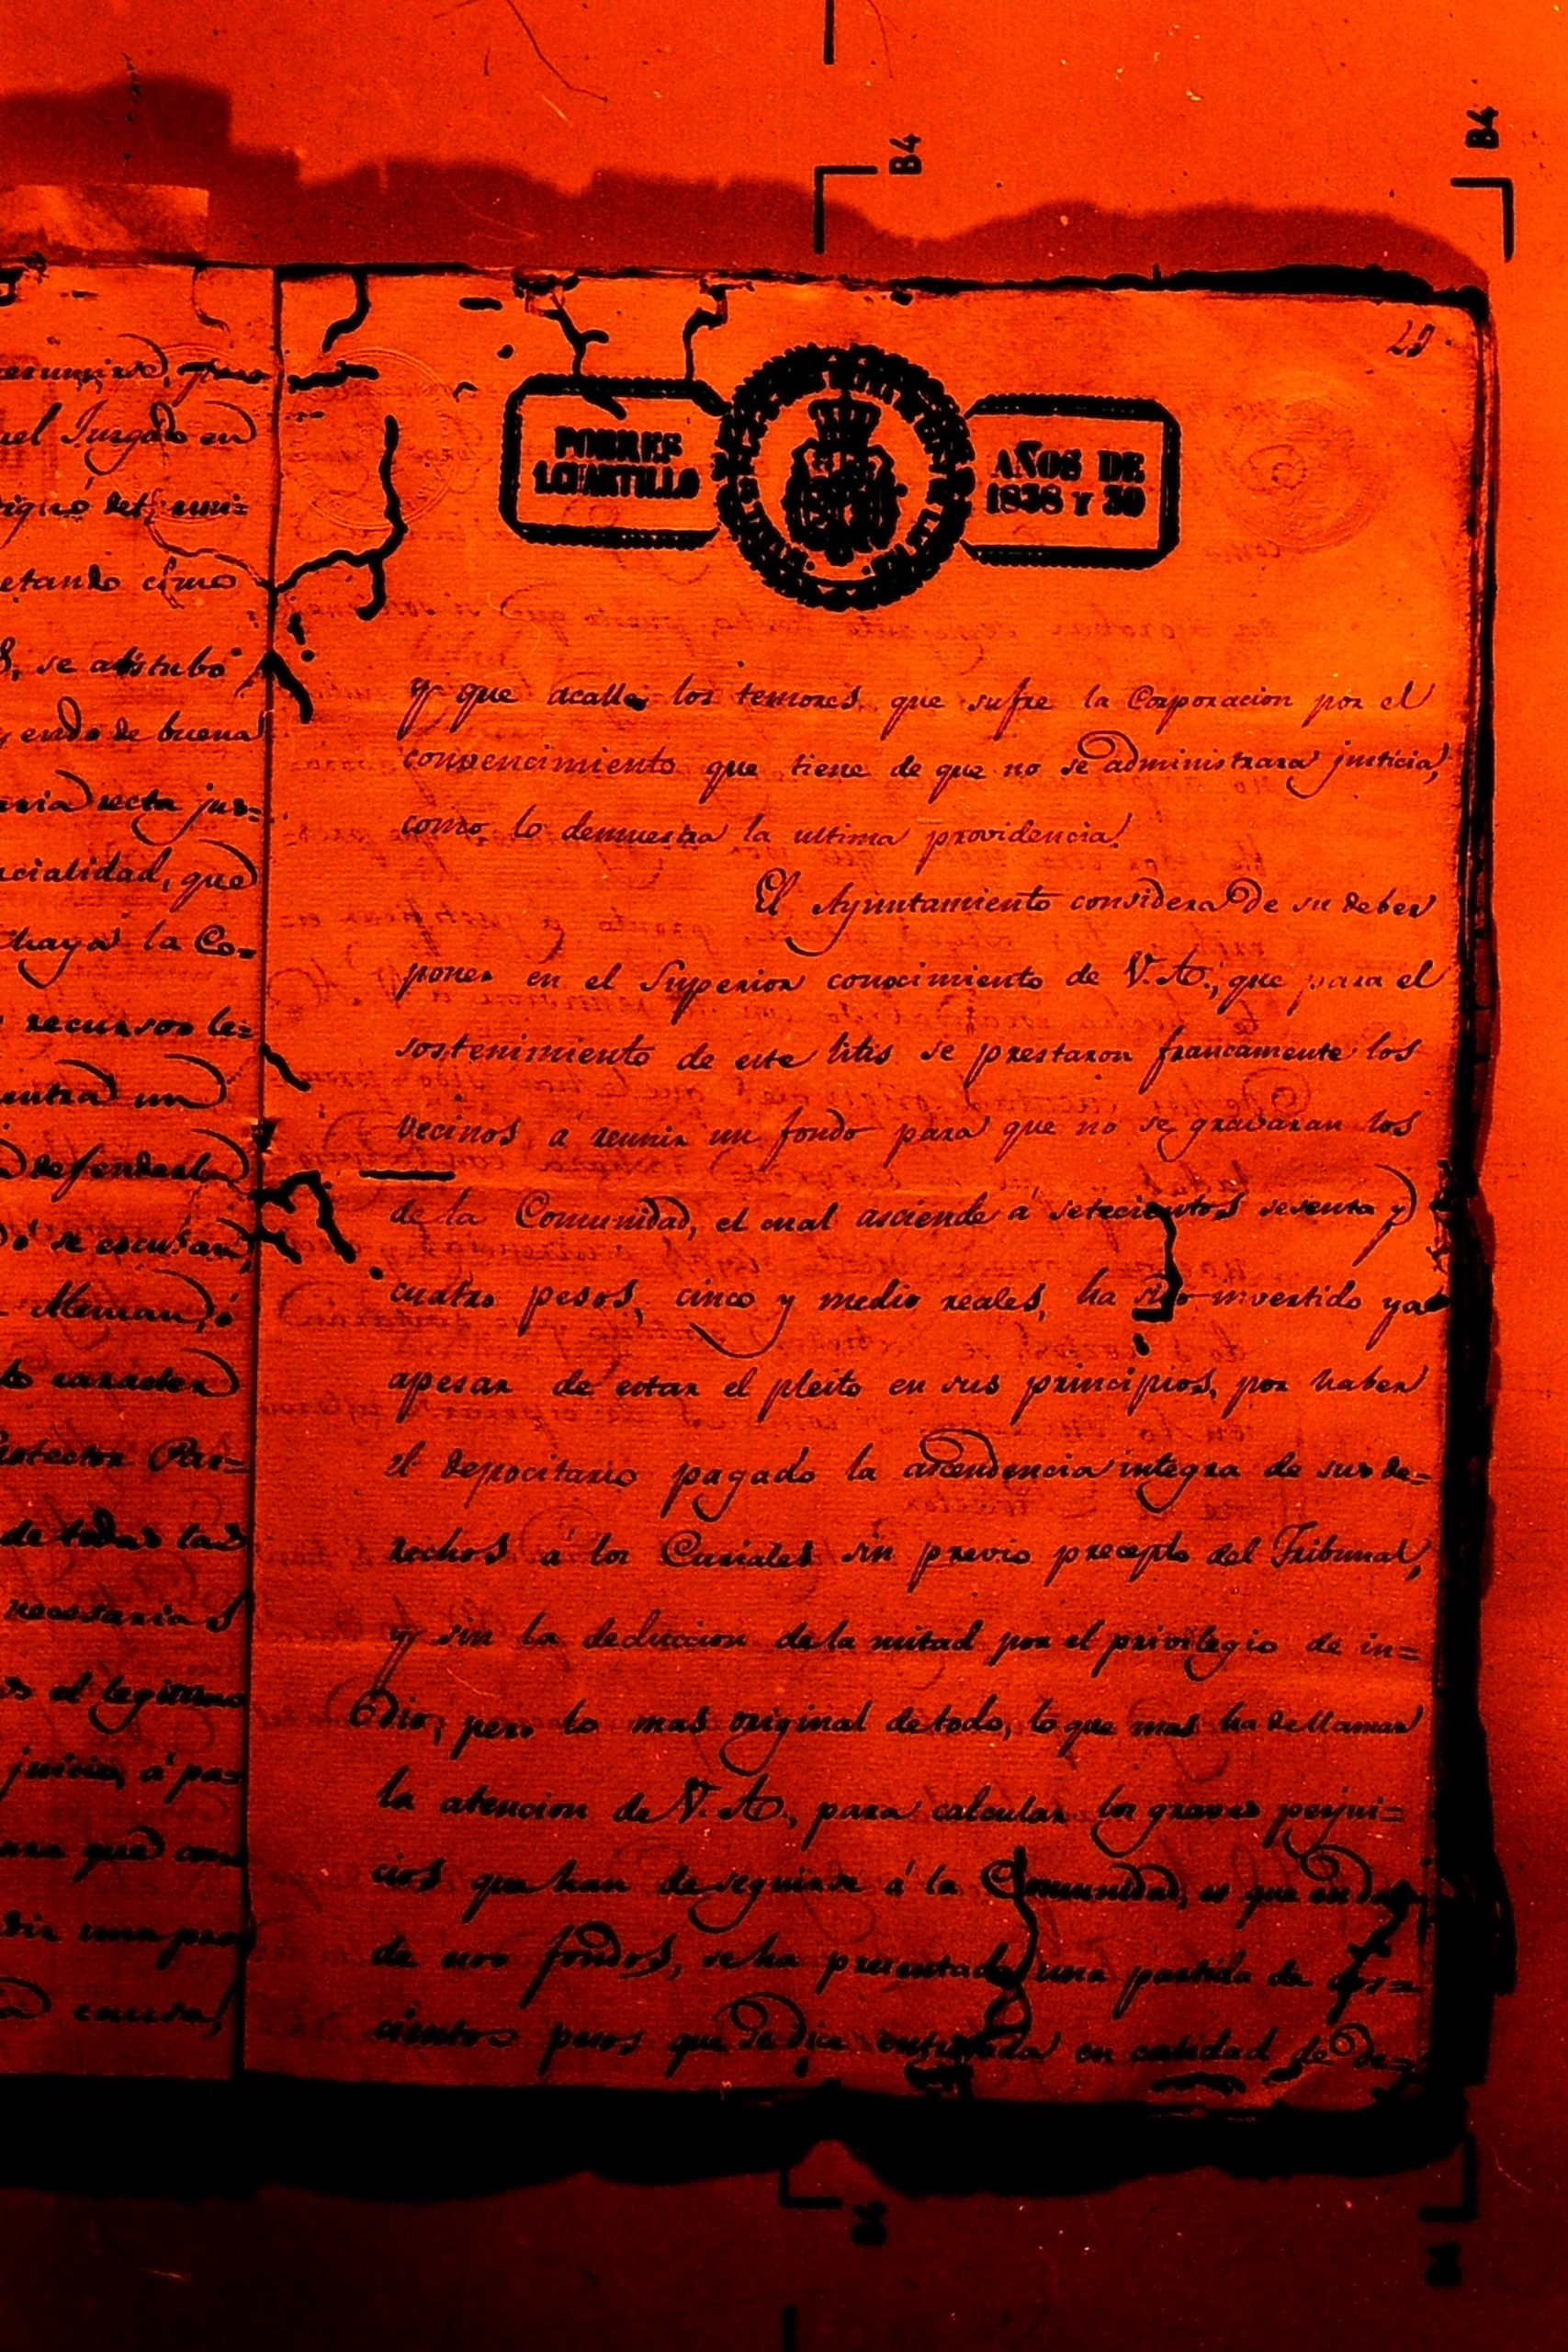 B4
B4
20.
POBRES
1. CUARTILLO
AÑOS DE
1838 Y 39
y que acalle los temores que sufre la Corporacion por el
convencimiento que tiene de que no se administrara justicia,
como lo demuestra la ultima providencia.
El Ayuntamiento considera de su deber
poner en el Superior conocimiento de V. A., que para el
sostenimiento de este litis se prestaron francamente los
vecinos á reunir un fondo para que no se gravaran los
de la Comunidad, el cual asciende á setecientos sesenta y
cuatro pesos, cinco y medio reales, ha sido invertido ya
apesar de estar el pleito en sus principios, por haber
el depocitario pagado la ascendencia integra de sus de=
rechos á los Curiales sin previo precepto del Tribunal,
y sin la deduccion de la mitad por el privilegio de in=
dio; pero lo mas original de todo, lo que mas ha de llamar
la atencion de V. A., para calcular los graves perjui=
cios que han de seguirse á la Comunidad, es que en
de nros fondos, se ha presentado una partida de dos=
cientos pesos que se dice entregada en cantidad de de=
el Juzgado en
etando cómo
se abstubo
endo de buena
recta jus=
cialidad, que
haya la Co=
recursos le=
un
defenderla
se escusan,
Aleman, ó
caracter
Protector Par=
de todas las
necesarias
el legitimo
juicio, á pa=
que
una
causa,